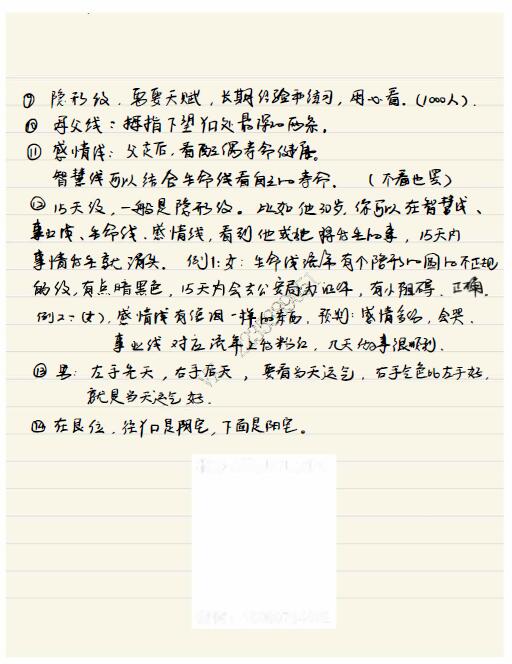 ⑨ 隐形纹，需要天赋，长期经验和练习，用心看。(1000人)。
⑩ 母父线：拇指下望 处最深的两条。
⑪ 感情线：父走后，看配偶寿命健康。
智慧线可以结合生命线看自己的寿命。（不看也罢）
⑫ 15天纹，一般是隐形纹。比如他30岁，你可以在智慧线、
事业线、生命线、感情线，看到他或她将发生的事，15天内
事情发生就消失。例1：女：生命线流年有个隐形的圆的不规
的纹，有点暗黑色，15天内会去公安局办证件，有小阻碍。正确。
例2：(女)，感情线有 一样的东西，预判：感情多 ，会哭。
事业线对应流年上有粉红，几天 事很顺利。
⑬ 男：左手先天，右手后天，要看当天运气，右手气色比左手好，
就是当天运气好。
⑭ 在艮位，往 是阴宅，下面是阳宅。